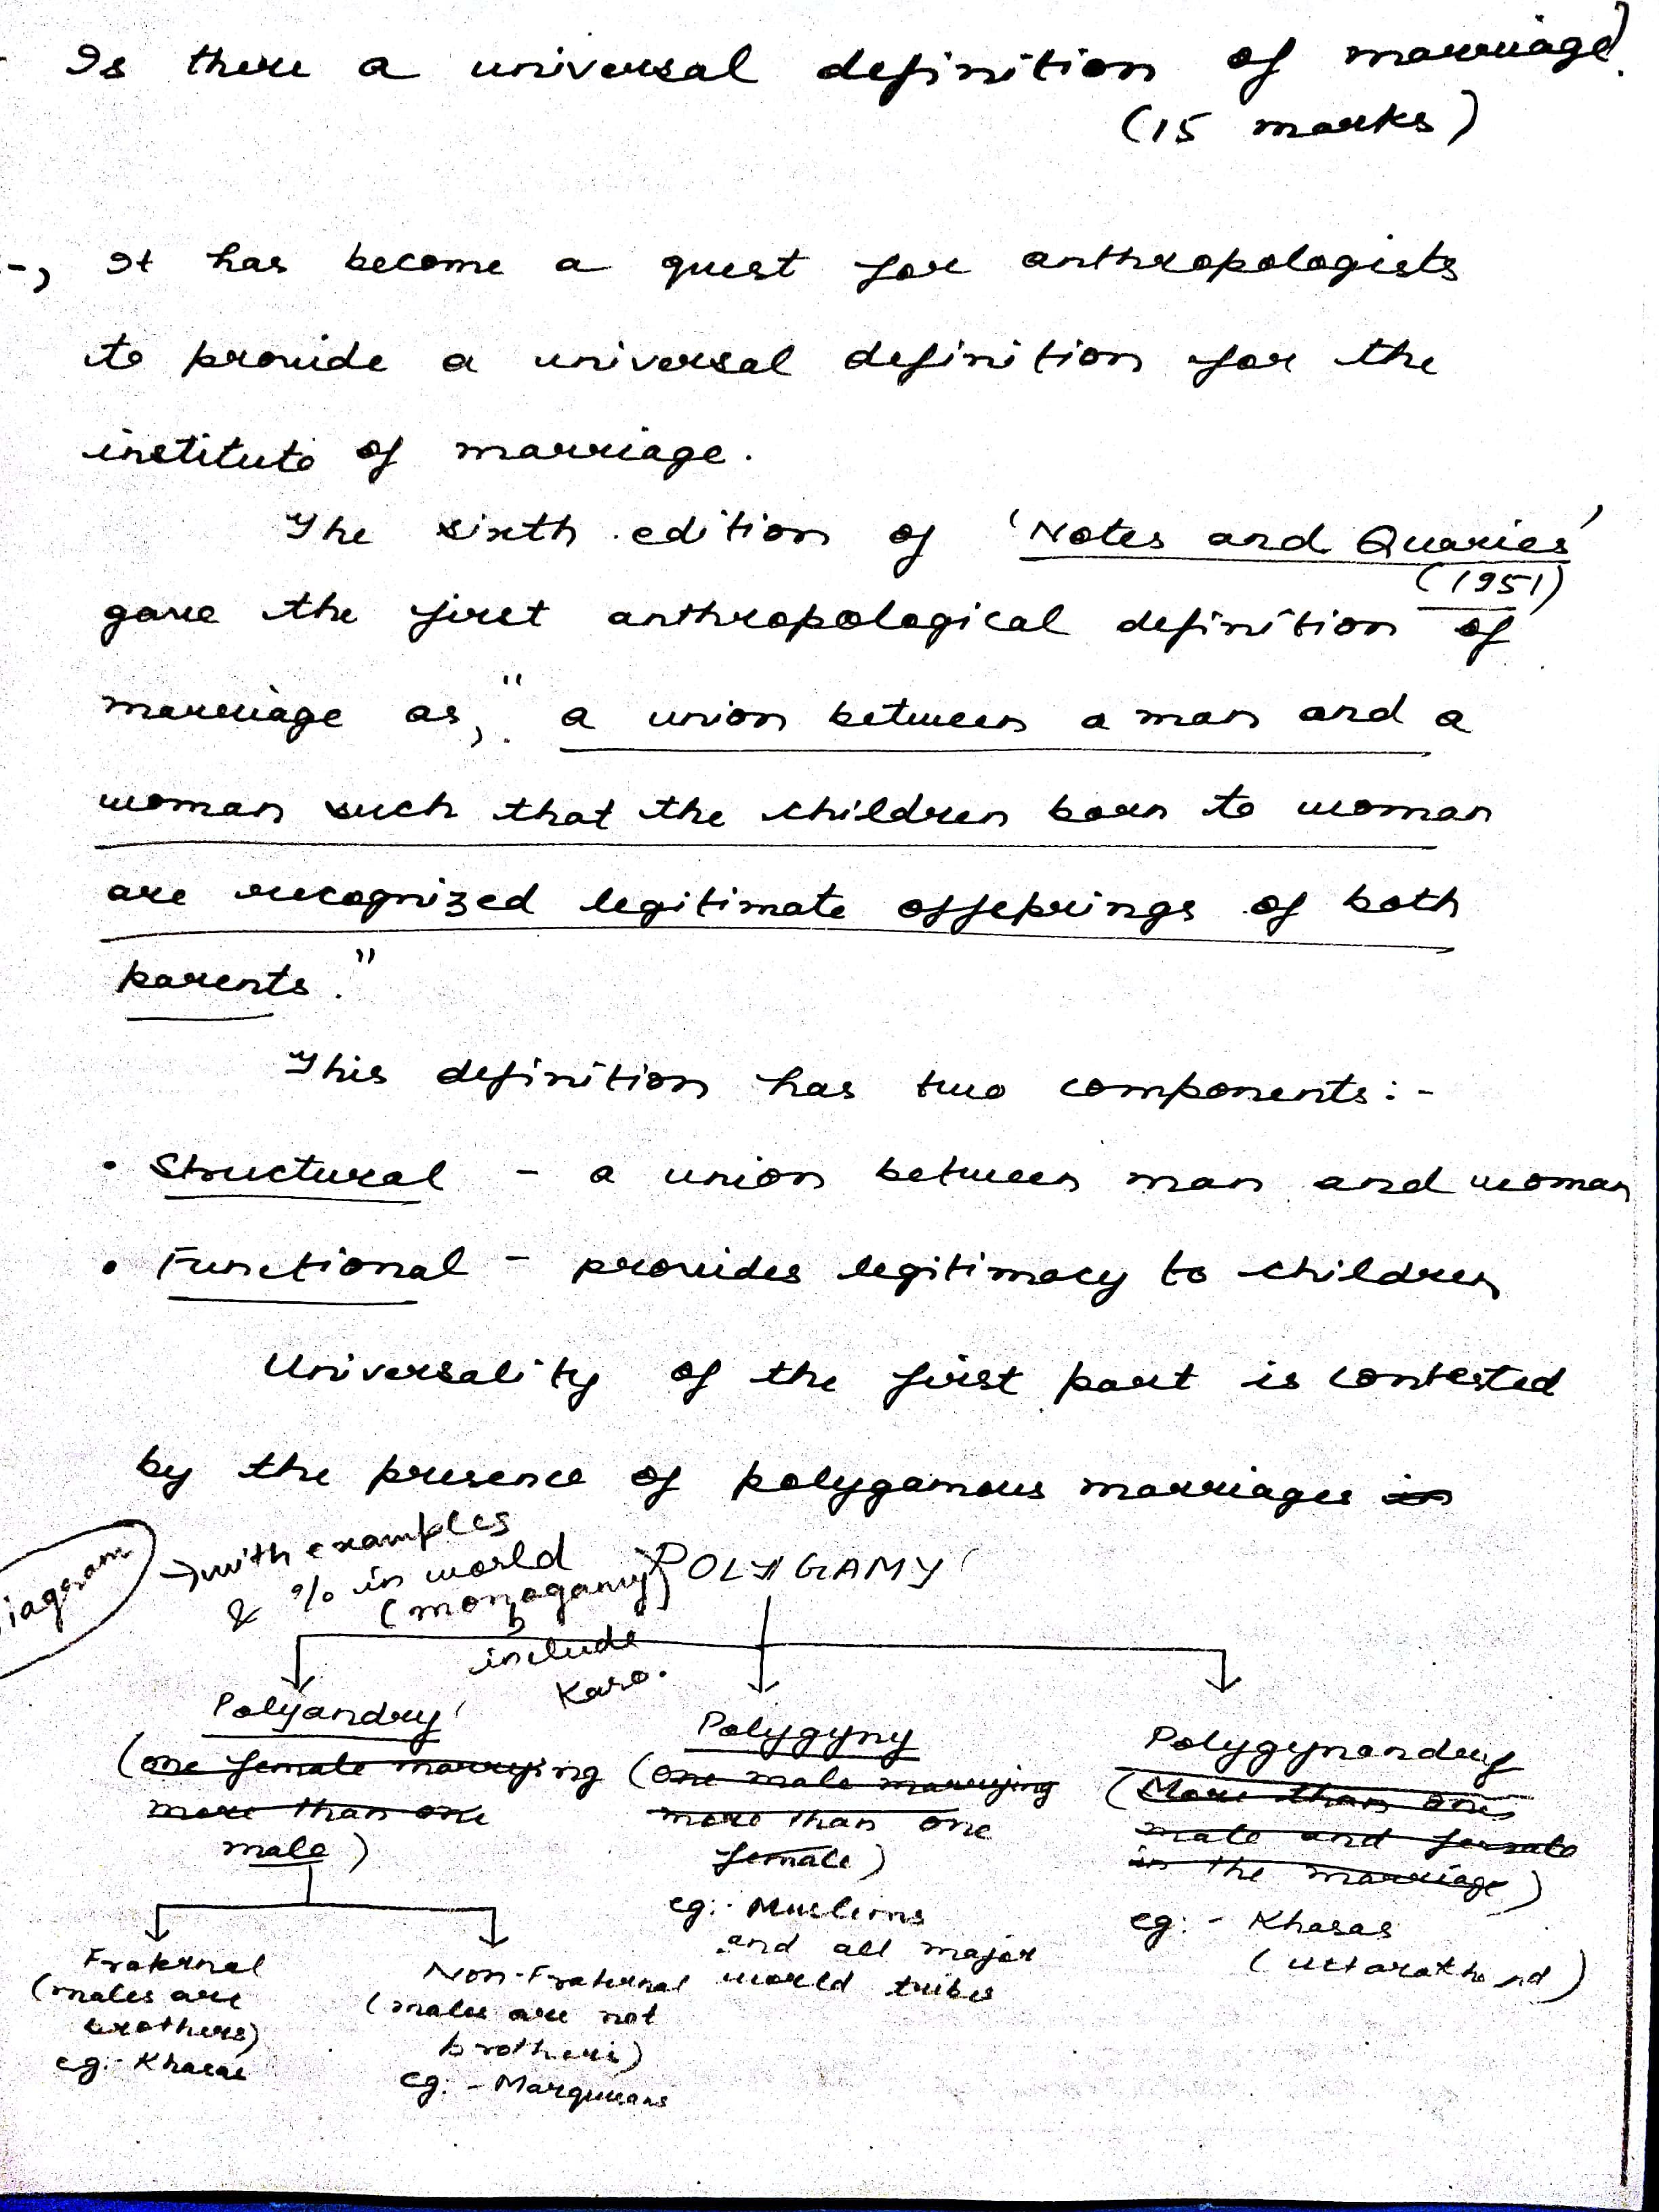 Is there a universal definition of marriage?
(15 marks)
It has become a quest for anthropologists
to provide a universal definition for the
institute of marriage.
The sixth edition of 'Notes and Quaries'
(1951)
gave the first anthropological definition of
marriage as, "a union between a man and a
woman such that the children born to woman
are recognized legitimate offsprings of both
parents."
This definition has two components:-
• Structural - a union between man and woman
• Functional - provides legitimacy to children
Universality of the first part is contested
by the presence of polygamous marriages in
iagram → with examples
& % in world
(monogamy)
include
Karo.
POLYGAMY
Polyandry
(one female marrying
more than one
male)
Polygyny
(one male marrying
more than one
female)
eg:- Muslims
and all major
world tribes
Polygynandry
(More than one
male and female
in the marriage)
eg:- Khasas
(Uttarakhand)
Fraternal
(males are
brothers)
eg:- Khasas
Non-Fraternal
(males are not
brothers)
eg:- Marquesans